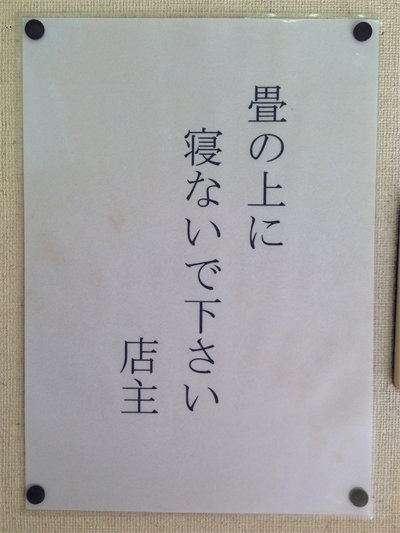 畳の上に
寝ないで下さい
店主